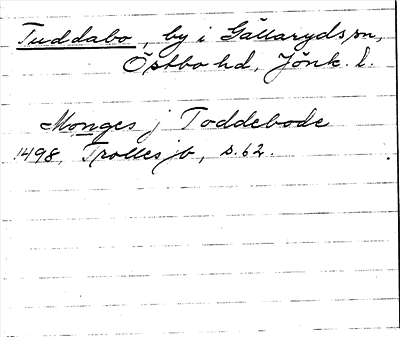 Tuddabo, by i Gällarydssn,
Östbo hd, Jönk. l.
Monges j Toddebode
1498, Trolles jb, s. 62.